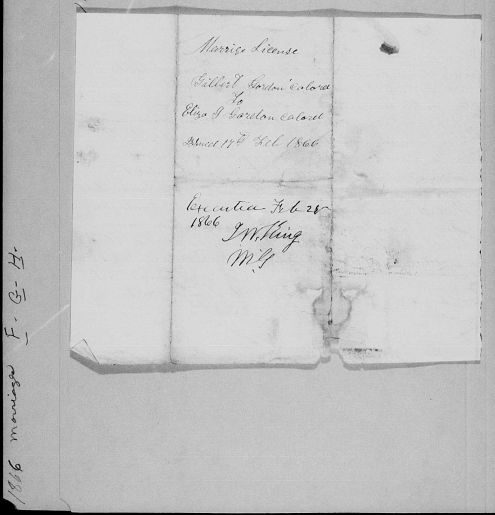 Marrige License
Gilbert Gordon colored
To
Eliza J Gordon colored
Issued 17th Feb 1866
Executed Feb 28
1866
J W King
M.G
1866 marriages F-G-H.